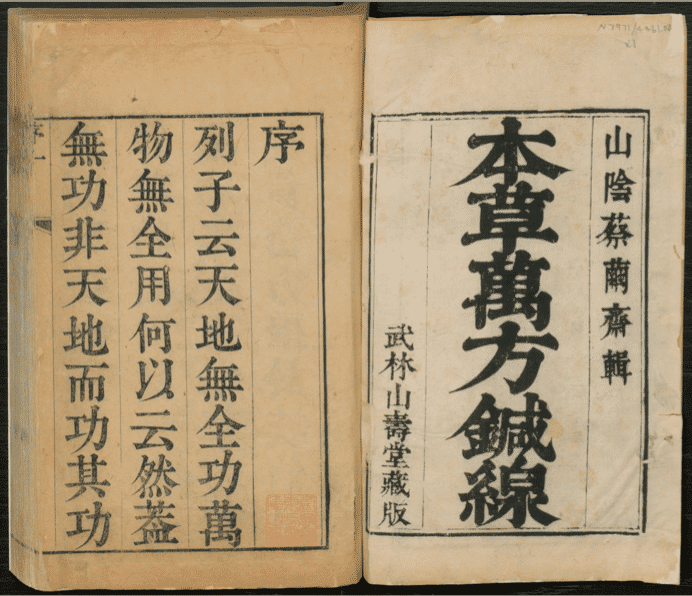 山陰蔡繭齋輯
本草萬方鍼線
武林山壽堂藏版
序
列子云天地無全功萬
物無全用何以云然葢
無功非天地而功其功